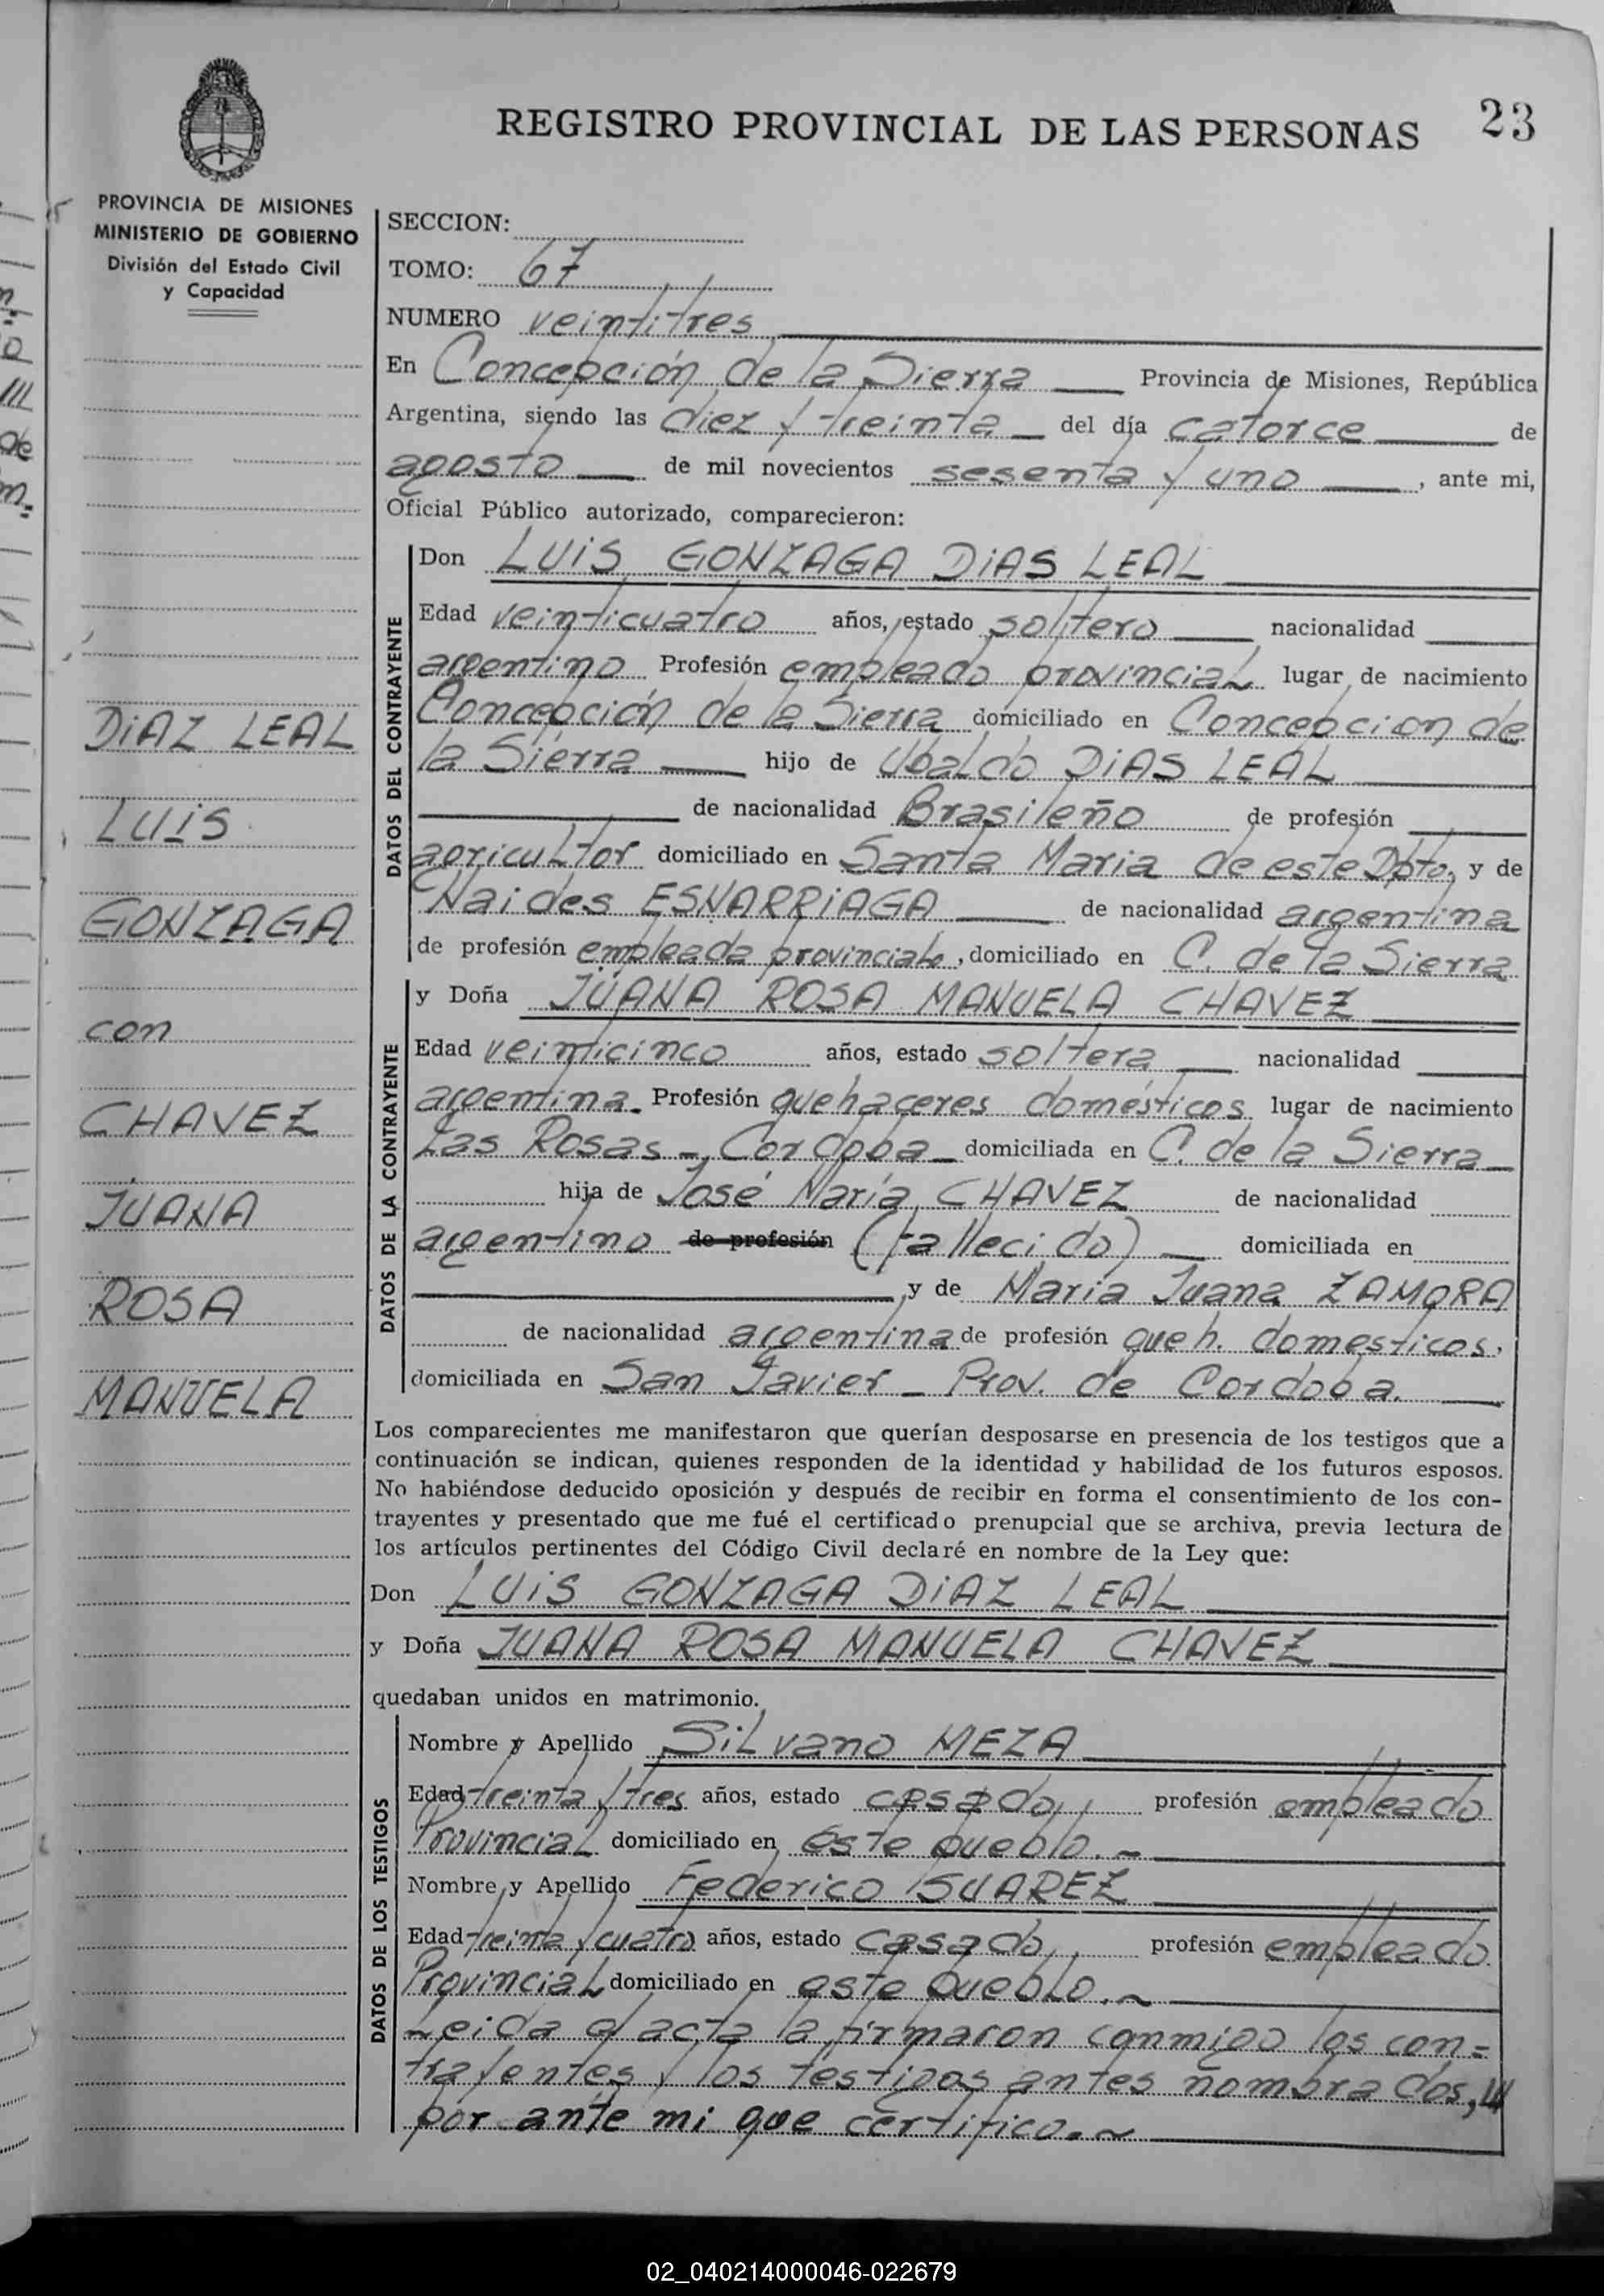 23
REGISTRO PROVINCIAL DE LAS PERSONAS
PROVINCIA DE MISIONES
MINISTERIO DE GOBIERNO
División del Estado Civil
y Capacidad
DIAZ LEAL
LUIS
GONZAGA
con
CHAVEZ
JUANA
ROSA
MANUELA
SECCION:
TOMO: 67
NUMERO veintitres
En Concepción de la Sierra Provincia de Misiones, República
Argentina, siendo las diez y treinta del día catorce de
agosto de mil novecientos sesenta y uno, ante mi,
Oficial Público autorizado, comparecieron:
DATOS DEL CONTRAYENTE
Don LUIS GONZAGA DIAS LEAL
Edad veinticuatro años, estado soltero nacionalidad
argentino Profesión empleado provincial lugar de nacimiento
Concepción de la Sierra domiciliado en Concepcion de
la Sierra hijo de Ubaldo DIAS LEAL
de nacionalidad Brasileño de profesión
agricultor domiciliado en Santa Maria de este Dpto. y de
Naides ESNARRIAGA de nacionalidad argentina
de profesión empleada provincial, domiciliado en C. de la Sierra
DATOS DE LA CONTRAYENTE
y Doña JUANA ROSA MANUELA CHAVEZ
Edad veinticinco años, estado soltera nacionalidad
argentina. Profesión quehaceres domésticos lugar de nacimiento
Las Rosas - Cordoba domiciliada en C. de la Sierra
hija de José María CHAVEZ de nacionalidad
argentino de profesión (fallecido) domiciliada en
y de Maria Juana ZAMORA
de nacionalidad argentina de profesión que h. domesticos,
domiciliada en San Javier - Prov. de Cordoba.
Los comparecientes me manifestaron que querían desposarse en presencia de los testigos que a
continuación se indican, quienes responden de la identidad y habilidad de los futuros esposos.
No habiéndose deducido oposición y después de recibir en forma el consentimiento de los con-
trayentes y presentado que me fué el certificado prenupcial que se archiva, previa lectura de
los artículos pertinentes del Código Civil declaré en nombre de la Ley que:
Don LUIS GONZAGA DIAZ LEAL
y Doña JUANA ROSA MANUELA CHAVEZ
quedaban unidos en matrimonio.
DATOS DE LOS TESTIGOS
Nombre y Apellido Silvano MEZA
Edad treinta y tres años, estado casado, profesión empleado
Provincial domiciliado en éste pueblo.-
Nombre y Apellido Federico SUAREZ
Edad treinta y cuatro años, estado casado, profesión empleado
Provincial domiciliado en este pueblo.-
Leida el acta la firmaron conmigo los con=
trayentes y los testigos antes nombrados,
por ante mi que certifico.-
02_040214000046-022679